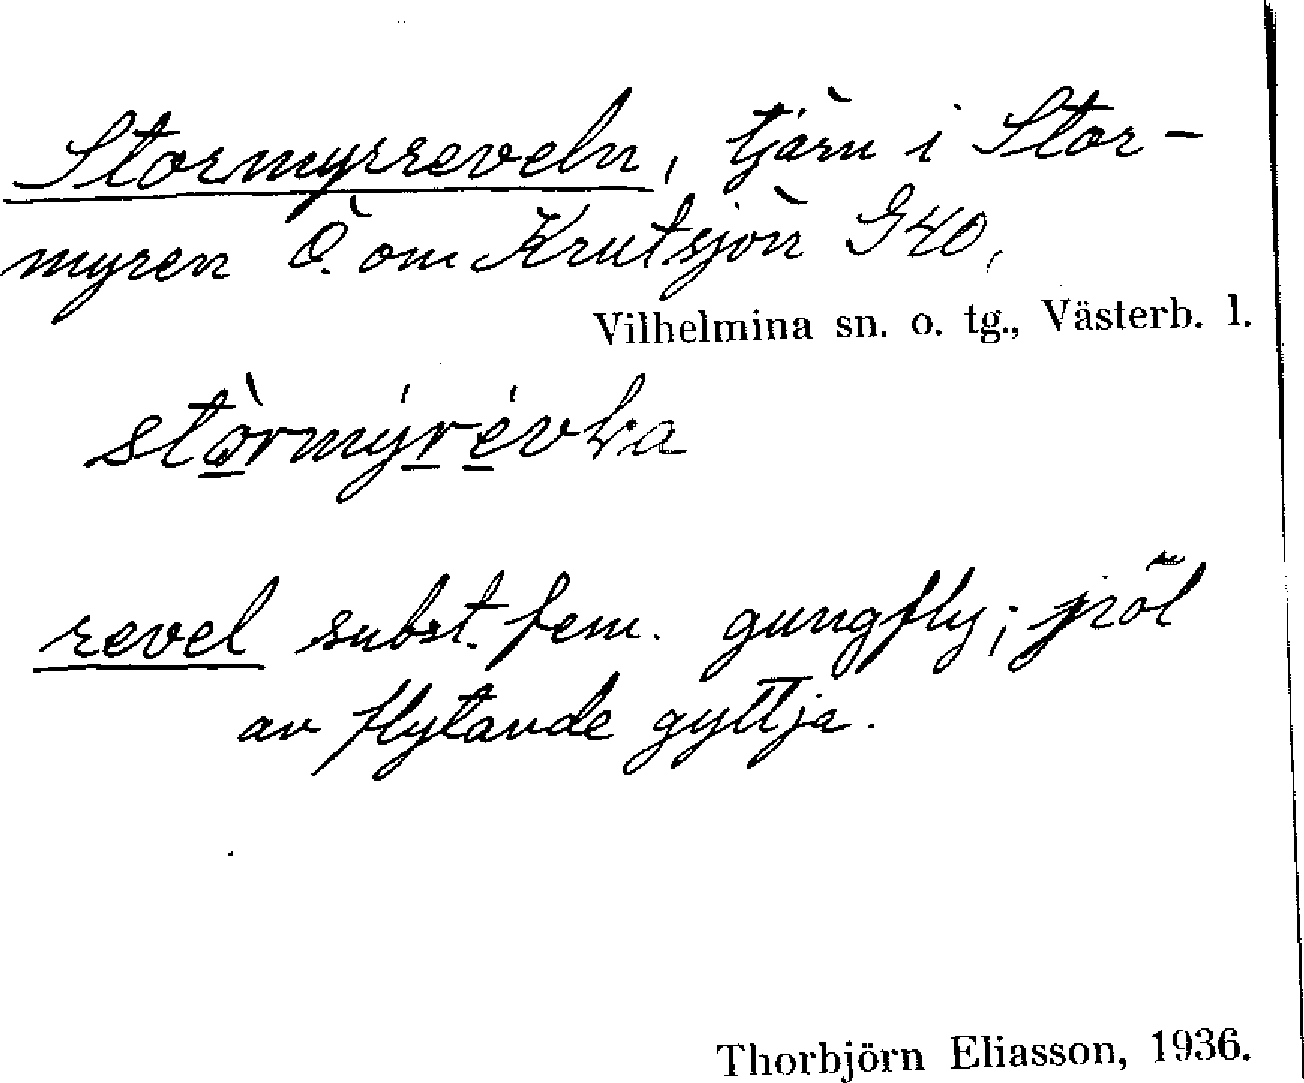 Stormyrreveln, tjärn i Stor-
myren Ö. om Krutsjön G40,
Vilhelmina sn. o. tg., Västerb. l.
revel subst. fem. gungfly; pöl
av flytande gyttja.
Thorbjörn Eliasson, 1936.